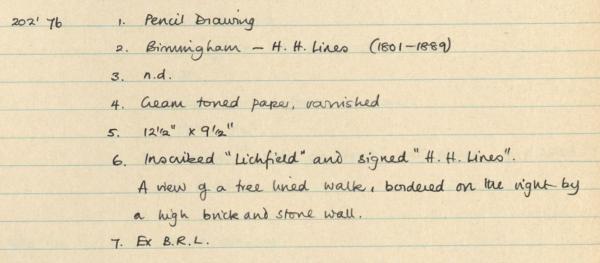 202' 76 1. Pencil Drawing
2. Birmingham - H. H. Lines (1801-1889)
3. n.d.
4. Cream toned paper, varnished
5. 12 1/2" x 9 1/2"
6. Inscribed "Lichfield" and signed "H. H. Lines".
A view of a tree lined walk, bordered on the right by
a high brick and stone wall.
7. Ex B.R.L.